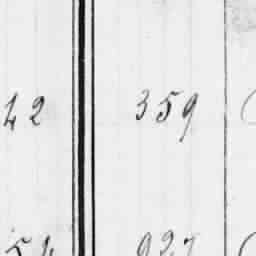 42 359
54 927